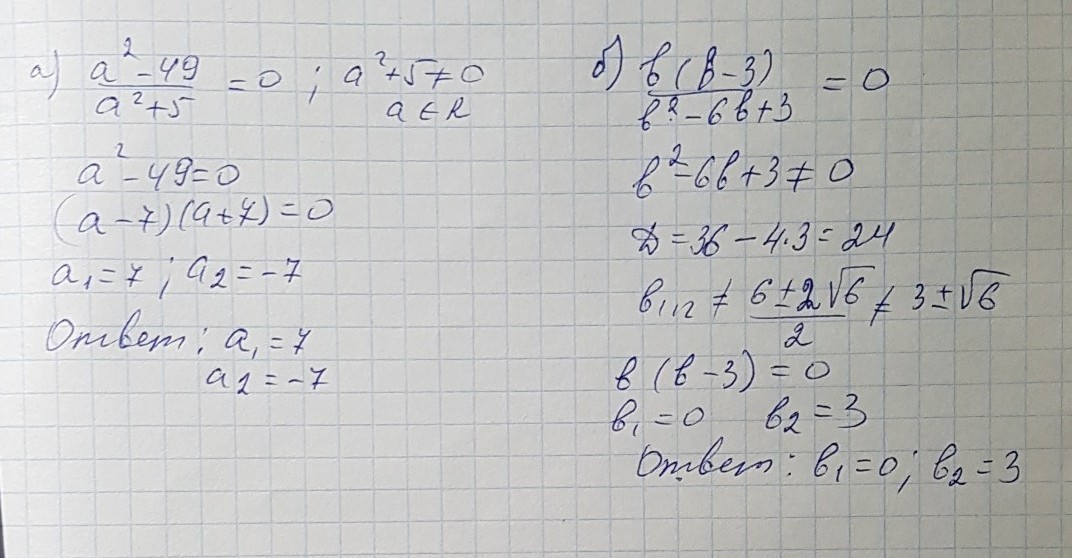 а) (a² - 49)/(a² + 5) = 0 ; a² + 5 ≠ 0
a ∈ R
a² - 49 = 0
(a - 7)(a + 7) = 0
a₁ = 7 ; a₂ = -7
Ответ: a₁ = 7
a₂ = -7
б) в(в - 3)/(в² - 6в + 3) = 0
в² - 6в + 3 ≠ 0
Д = 36 - 4·3 = 24
в₁,₂ ≠ (6 ± 2√6)/2 ≠ 3 ± √6
в (в - 3) = 0
в₁ = 0 в₂ = 3
Ответ: в₁ = 0; в₂ = 3